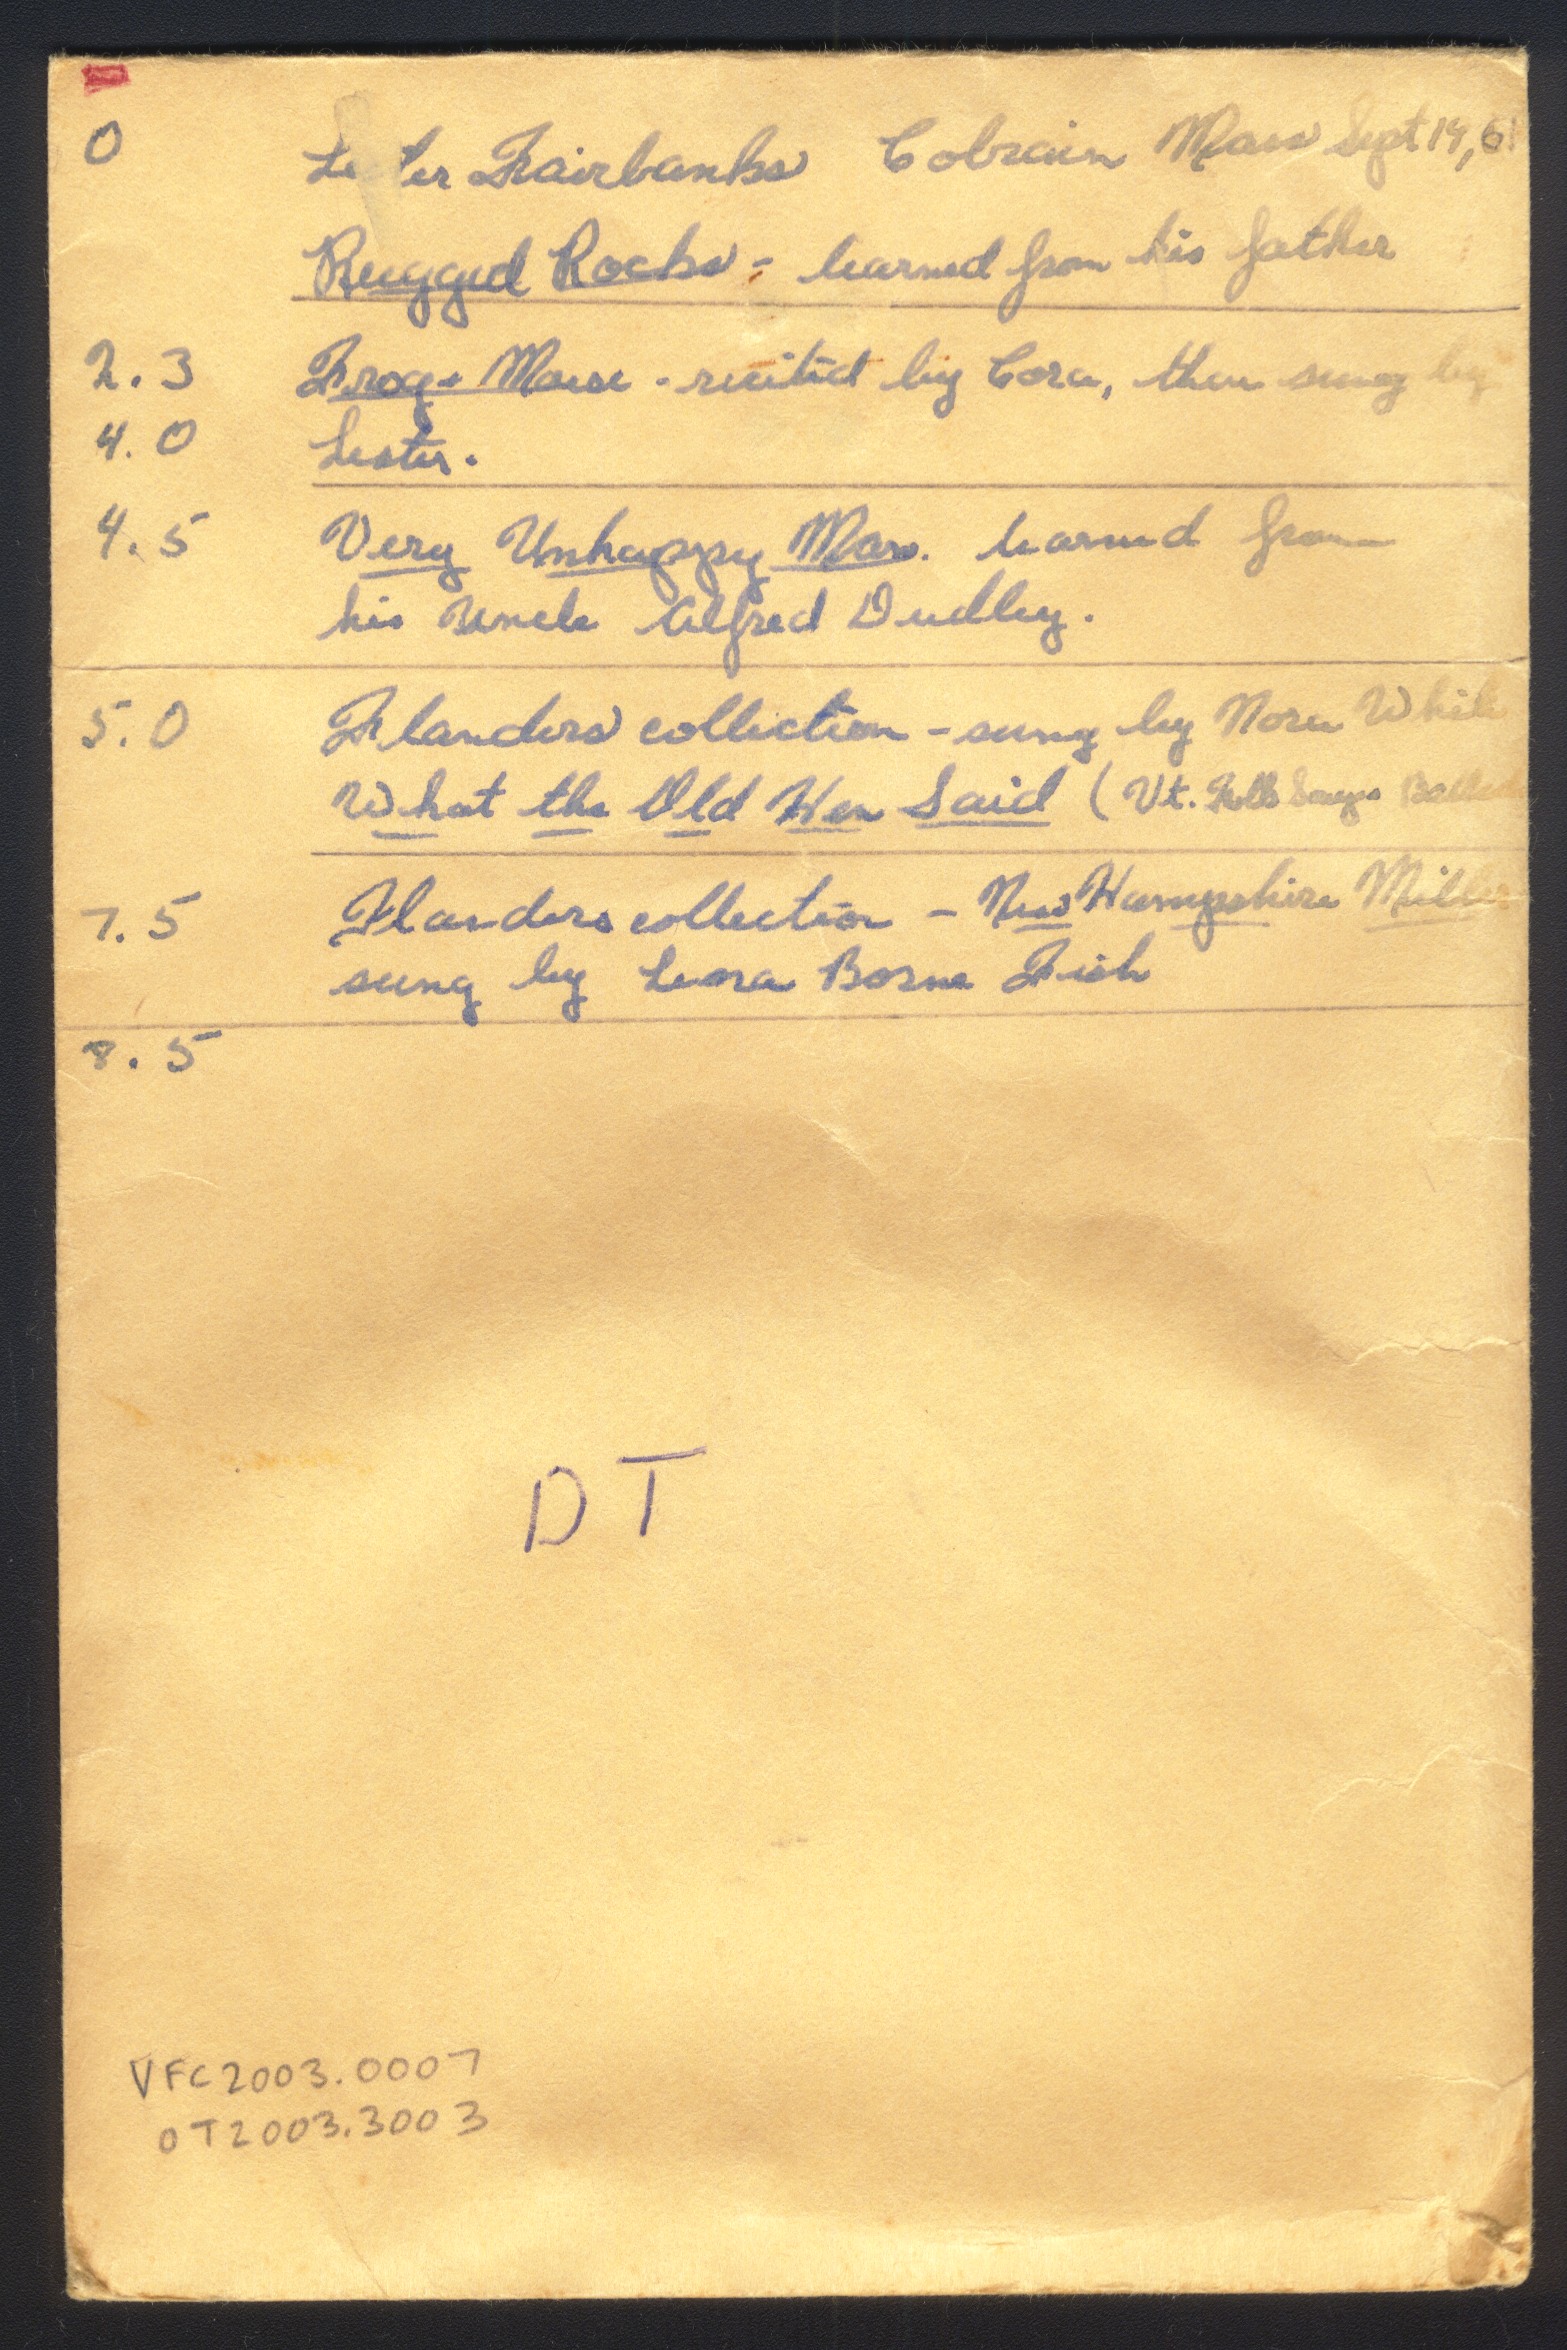 0 Lester Fairbanks Colrain Mass Sept 19, 61
Rugged Rocks - learned from his father
2.3 Frog + Mouse - recited by Cora, then sung by
4.0 Lester.
4.5 Very Unhappy Man. learned from
his Uncle Alfred Dudley.
5.0 Flanders collection - sung by Nora White
What the Old Hen Said (Vt. Folk Songs Ballads
7.5 Flanders collection - New Hampshire Miller
sung by Leora Borne Fish
8.5
DT
VFC2003.0007
OT2003.3003